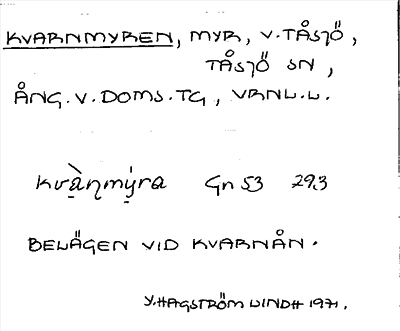 KVARNMYREN, MYR, V. TÅSJÖ,
TÅSJÖ SN,
ÅNG. V. DOMS. TG, VRNL. L.
kvàṇmy̠ra Gn 53 293
BELÄGEN VID KVARNÅN.
Y. HAGSTRÖM LINDH 1971.